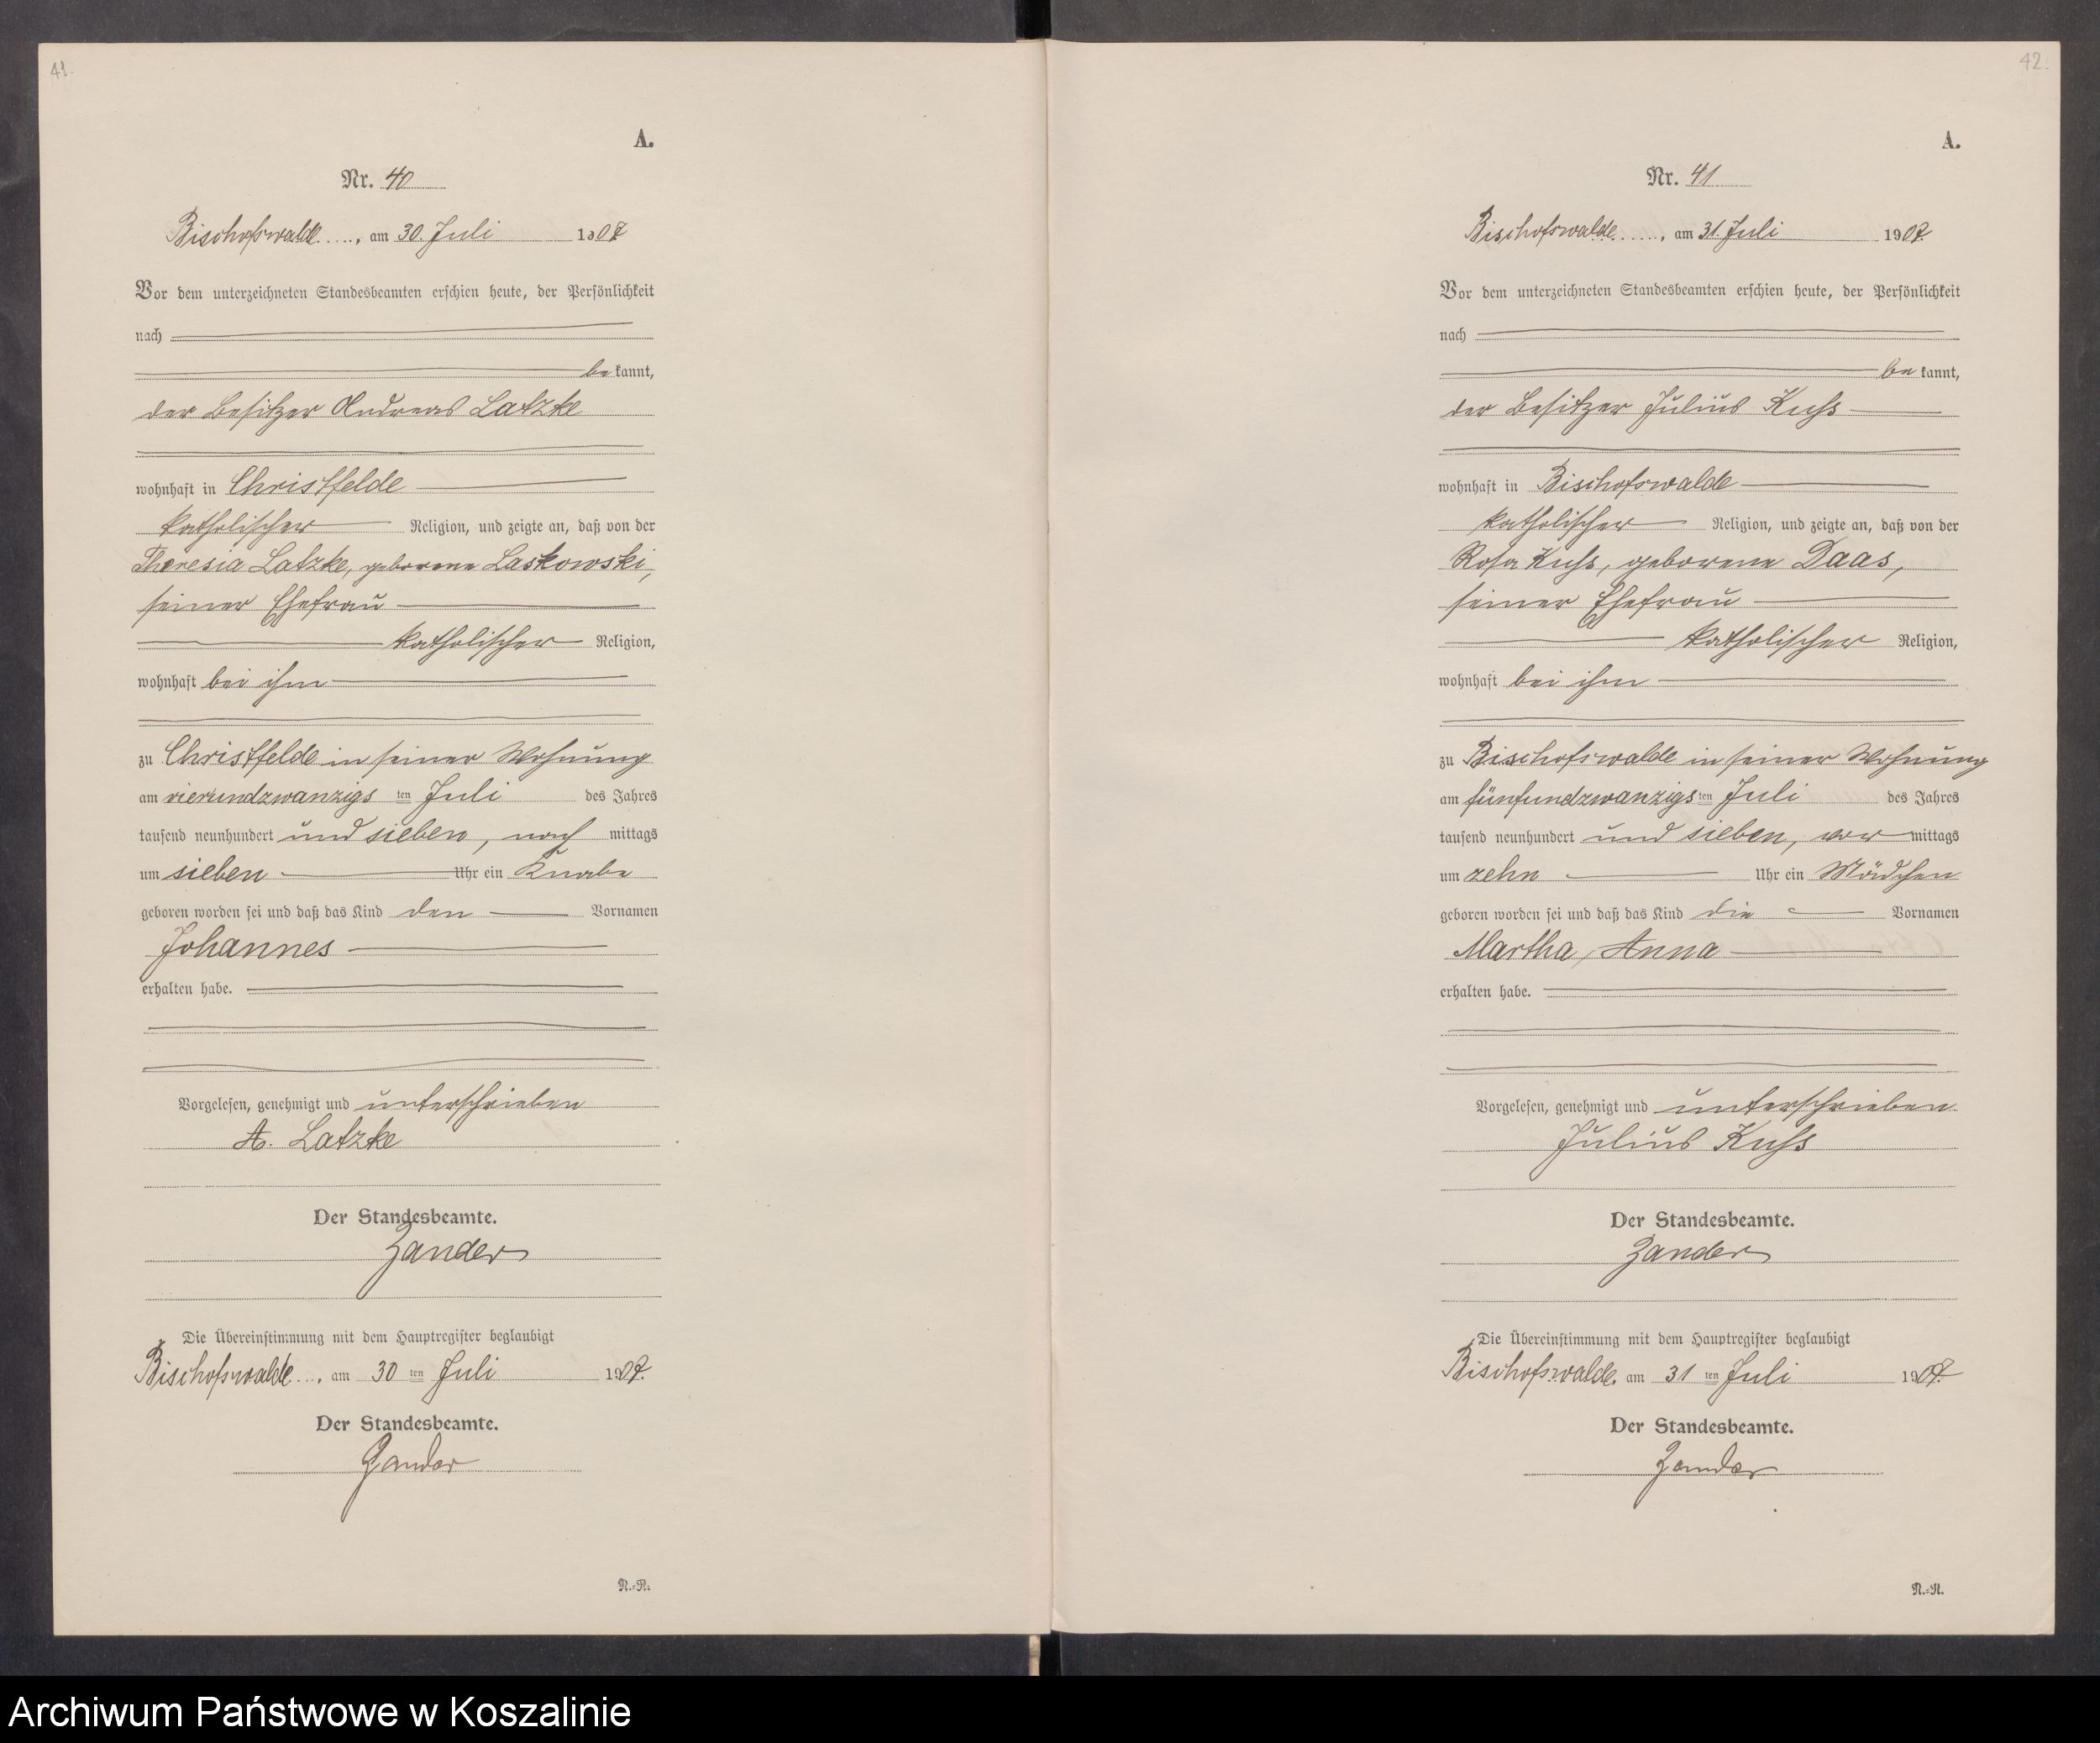 41.
A.
Nr. 40
Bischofswalde, am 30. Juli 1907
Vor dem unterzeichneten Standesbeamten erschien heute, der Persönlichkeit
nach
be kannt,
der Besitzer Andreas Latzke
wohnhaft in Christfelde
katholischer Religion, und zeigte an, daß von der
Theresia Latzke, geborene Laskowski,
seiner Ehefrau
katholischer Religion,
wohnhaft bei ihm
zu Christfelde in seiner Wohnung
am vierundzwanzigs ten Juli des Jahres
tausend neunhundert und sieben, nach mittags
um sieben Uhr ein Knabe
geboren worden sei und daß das Kind den Vornamen
Johannes
erhalten habe.
Vorgelesen, genehmigt und unterschrieben
A. Latzke
Der Standesbeamte.
Zander
Die Übereinstimmung mit dem Hauptregister beglaubigt
Bischofswalde, am 30 ten Juli 1907.
Der Standesbeamte.
Zander
N.-R.
42.
A.
Nr. 41
Bischofswalde, am 31. Juli 1907.
Vor dem unterzeichneten Standesbeamten erschien heute, der Persönlichkeit
nach
be kannt,
der Besitzer Julius Kuhs
wohnhaft in Bischofswalde
katholischer Religion, und zeigte an, daß von der
Rosa Kuhs, geborene Daas,
seiner Ehefrau
katholischer Religion,
wohnhaft bei ihm
zu Bischofswalde in seiner Wohnung
am fünfundzwanzigs ten Juli des Jahres
tausend neunhundert und sieben, vor mittags
um zehn Uhr ein Mädchen
geboren worden sei und daß das Kind die Vornamen
Martha, Anna
erhalten habe.
Vorgelesen, genehmigt und unterschrieben
Julius Kuhs
Der Standesbeamte.
Zander
Die Übereinstimmung mit dem Hauptregister beglaubigt
Bischofswalde, am 31 ten Juli 1907.
Der Standesbeamte.
Zander
N.-R.
Archiwum Państwowe w Koszalinie